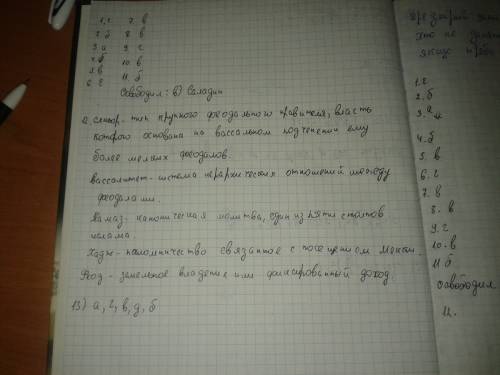 1. г 7. в
2. б 8. в
3. а 9. г
4. б 10. в
5. в 11. б
6. г
Освободил: в) Саладин
12. сеньор - тип крупного феодального правителя, власть
которого основана на вассальном подчинении ему
более мелких феодалов.
вассалитет - система иерархических отношений между
феодалами.
Намаз - каноническая молитва, один из пяти столпов
ислама.
Хадж - паломничество связанное с посещением Мекки.
Феод - земельное владение или фиксированный доход.
13) а, г, в, д, б
що не
якщо
1. г
2. б
3. а
4. б
5. в
6. г
7. в
8. в
9. г
10. в
11 б
освободил
12.